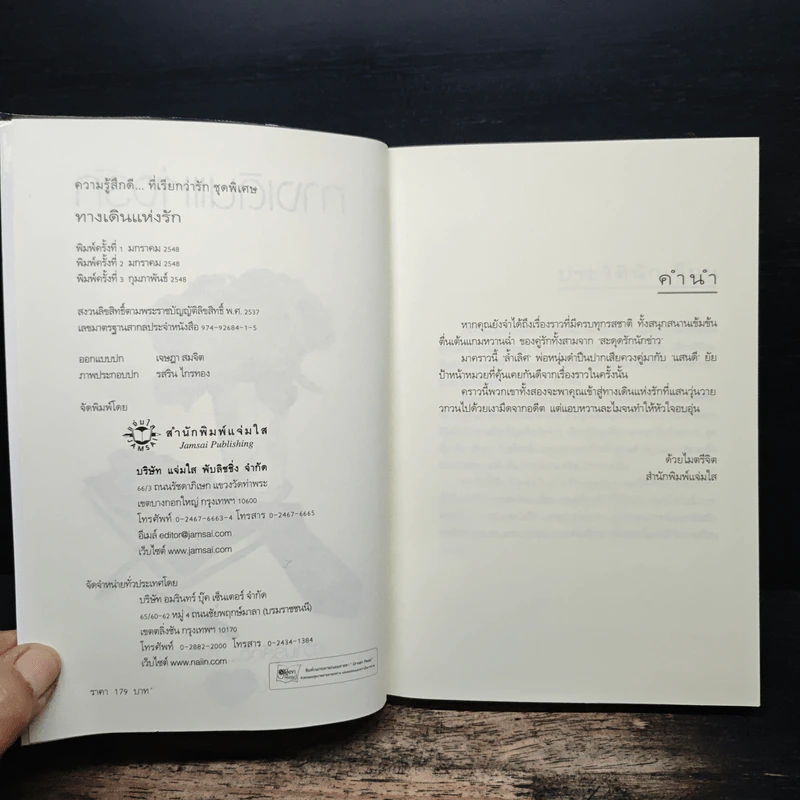 ความรู้สึกดี... ที่เรียกว่ารัก ชุดพิเศษ
ทางเดินแห่งรัก
พิมพ์ครั้งที่ 1 มกราคม 2548
พิมพ์ครั้งที่ 2 มกราคม 2548
พิมพ์ครั้งที่ 3 กุมภาพันธ์ 2548
สงวนลิขสิทธิ์ตามพระราชบัญญัติลิขสิทธิ์ พ.ศ. 2537
เลขมาตรฐานสากลประจำหนังสือ 974-92684-1-5
ออกแบบปก เจษฎา สมจิต
ภาพประกอบปก รสริน ไกรทอง
จัดพิมพ์โดย
แจ่มใส
JAMSAI
สำนักพิมพ์แจ่มใส
Jamsai Publishing
บริษัท แจ่มใส พับลิชชิ่ง จำกัด
66/3 ถนนรัชดาภิเษก แขวงวัดท่าพระ
เขตบางกอกใหญ่ กรุงเทพฯ 10600
โทรศัพท์ 0-2467-6663-4 โทรสาร 0-2467-6665
อีเมล์ editor@jamsai.com
เว็บไซต์ www.jamsai.com
จัดจำหน่ายทั่วประเทศโดย
บริษัท อมรินทร์ บุ๊ค เซ็นเตอร์ จำกัด
65/60-62 หมู่ 4 ถนนชัยพฤกษ์มาลา (บรมราชชนนี)
เขตตลิ่งชัน กรุงเทพฯ 10170
โทรศัพท์ 0-2882-2000 โทรสาร 0-2434-1384
เว็บไซต์ www.naiin.com
ราคา 179 บาท
คำนำ
หากคุณยังจำได้ถึงเรื่องราวที่มีครบทุกรสชาติ ทั้งสนุกสนานเข้มข้น
ตื่นเต้นแกมหวานฉ่ำ ของคู่รักทั้งสามจาก 'สะดุดรักนักข่าว'
มาคราวนี้ 'ล้ำเลิศ' พ่อหนุ่มดำปืนปากเสียควงคู่มากับ 'แสนดี' ยัย
ป้าหน้าหมวยที่คุ้นเคยกันดีจากเรื่องราวในครั้งนั้น
คราวนี้พวกเขาทั้งสองจะพาคุณเข้าสู่ทางเดินแห่งรักที่แสนวุ่นวาย
วกวนไปด้วยเงามืดจากอดีต แต่แอบหวานละไมจนทำให้หัวใจอบอุ่น
ด้วยไมตรีจิต
สำนักพิมพ์แจ่มใส